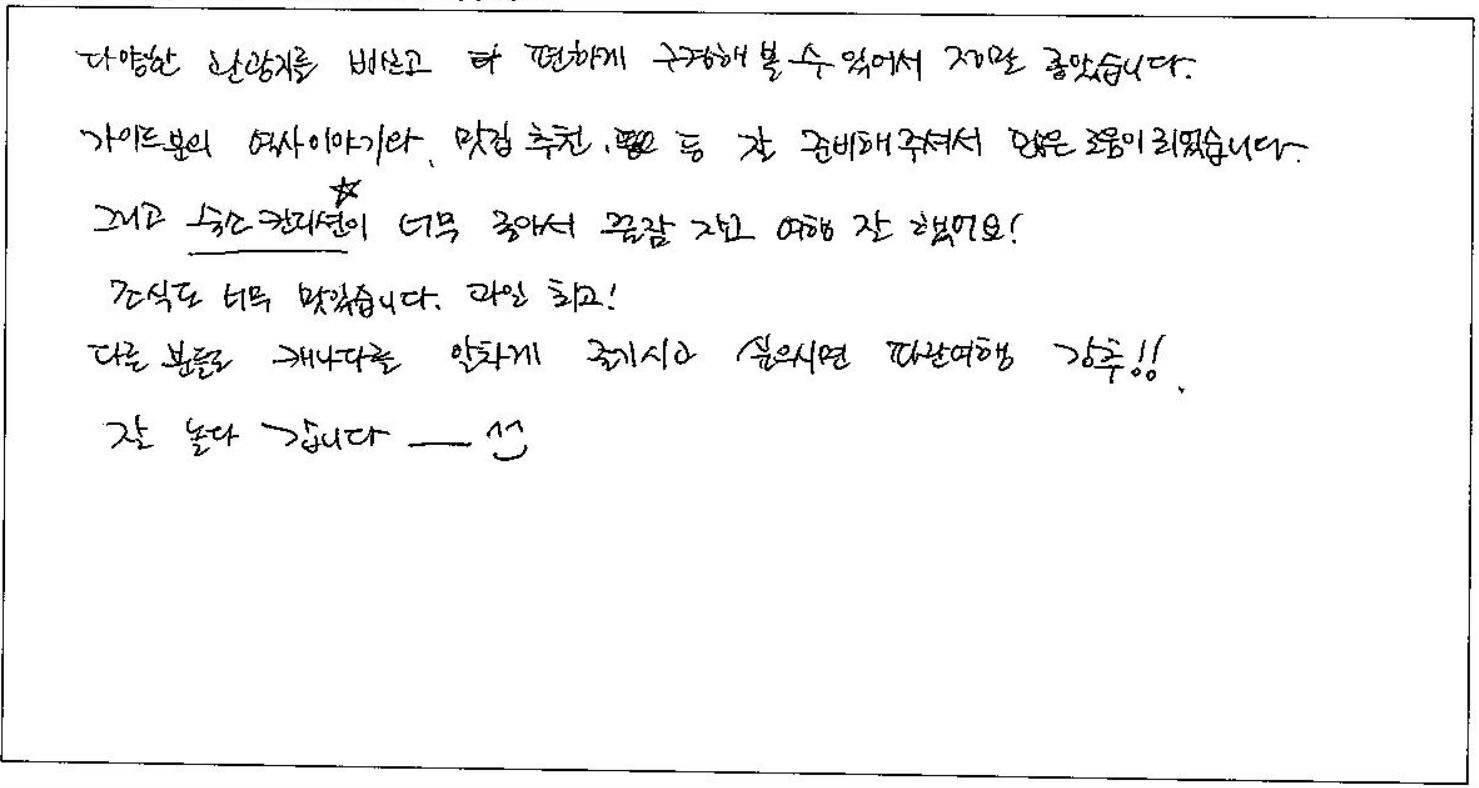 다양한 관광지를 버스타고 편하게 구경해 볼 수 있어서 정말 좋았습니다.
가이드분의 역사이야기와, 맛집 추천, 등 잘 준비해주셔서 많은 도움이 되었습니다.
그리고 숙소 컨디션이 너무 좋아서 꿀잠 자고 여행 잘 했어요!
조식도 너무 맛있습니다. 과일 최고!
다른 분들도 캐나다를 알차게 즐기시고 싶으시면 따관여행 강추!!
잘 놀다 갑니다